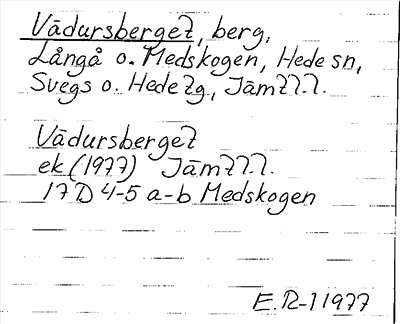 Vädursberget, berg,
Långå o. Medskogen, Hede sn,
Svegs o. Hede tg, Jämtl.l.
Vädursberget
ek (1977) Jämtl.l.
17 D 4-5 a-b Medskogen
E.R-l 1977